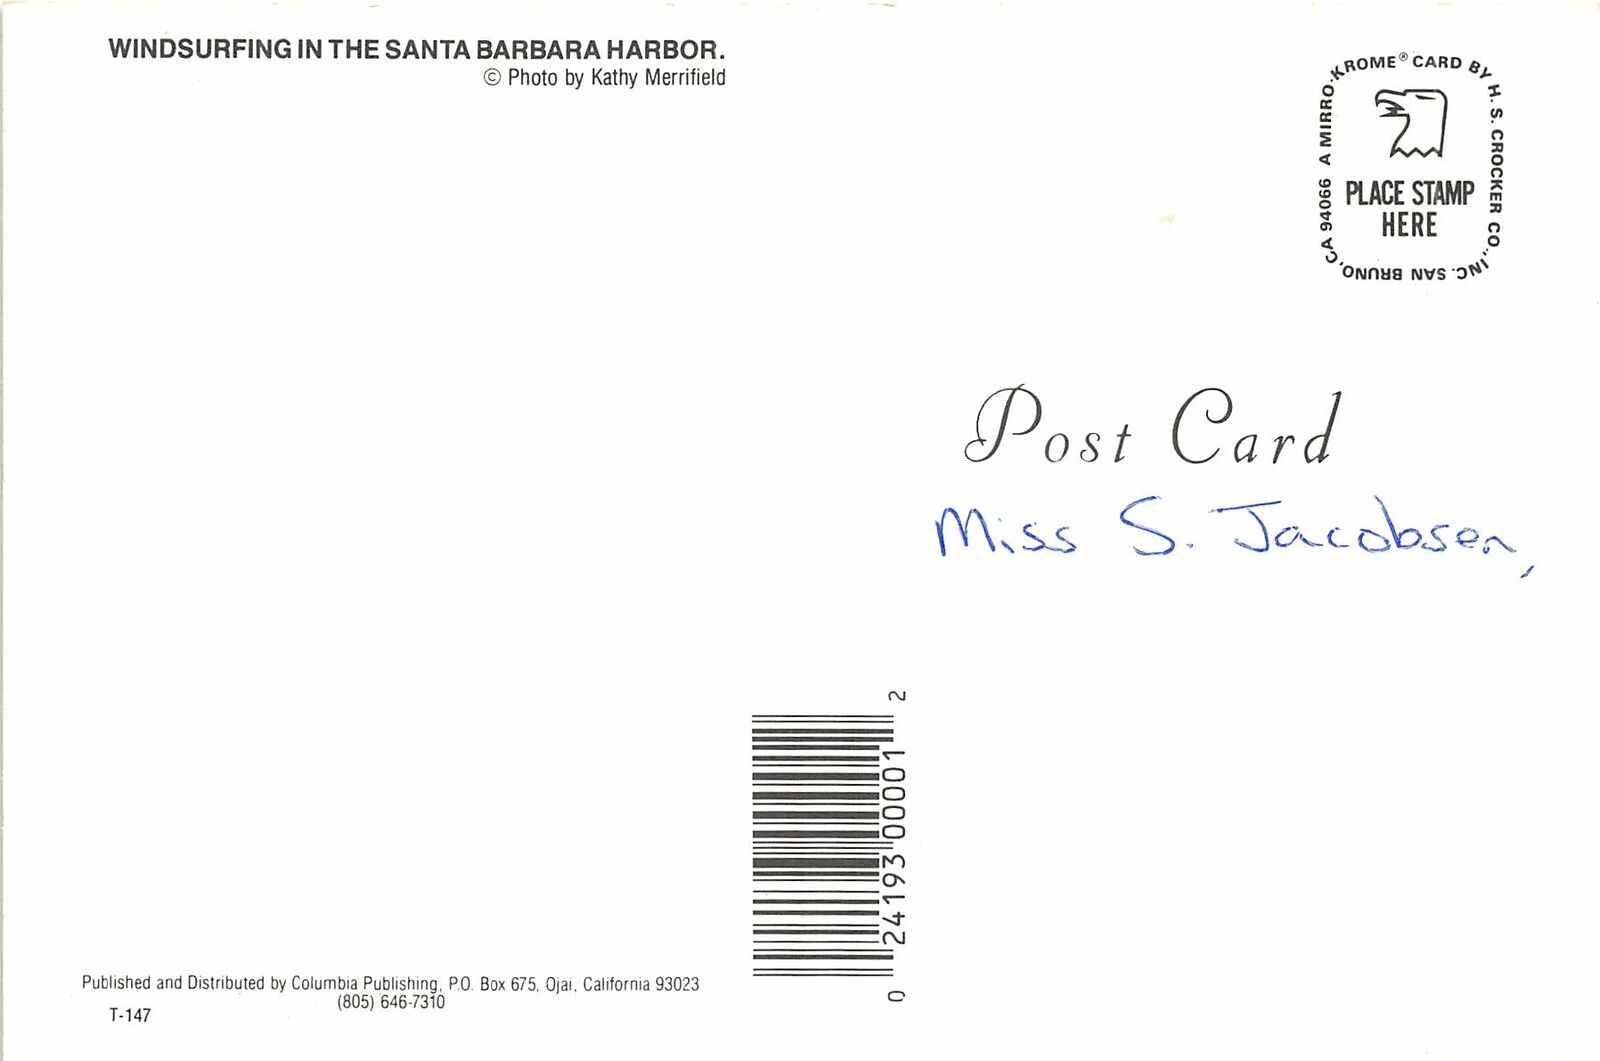 WINDSURFING IN THE SANTA BARBARA HARBOR.
© Photo by Kathy Merrifield
A MIRRO-KROME® CARD BY H. S. CROCKER CO., INC. SAN BRUNO, CA 94066
PLACE STAMP
HERE
Post Card
Miss S. Jacobsen,
0 24193 00001 2
Published and Distributed by Columbia Publishing, P.O. Box 675, Ojai, California 93023
(805) 646-7310
T-147